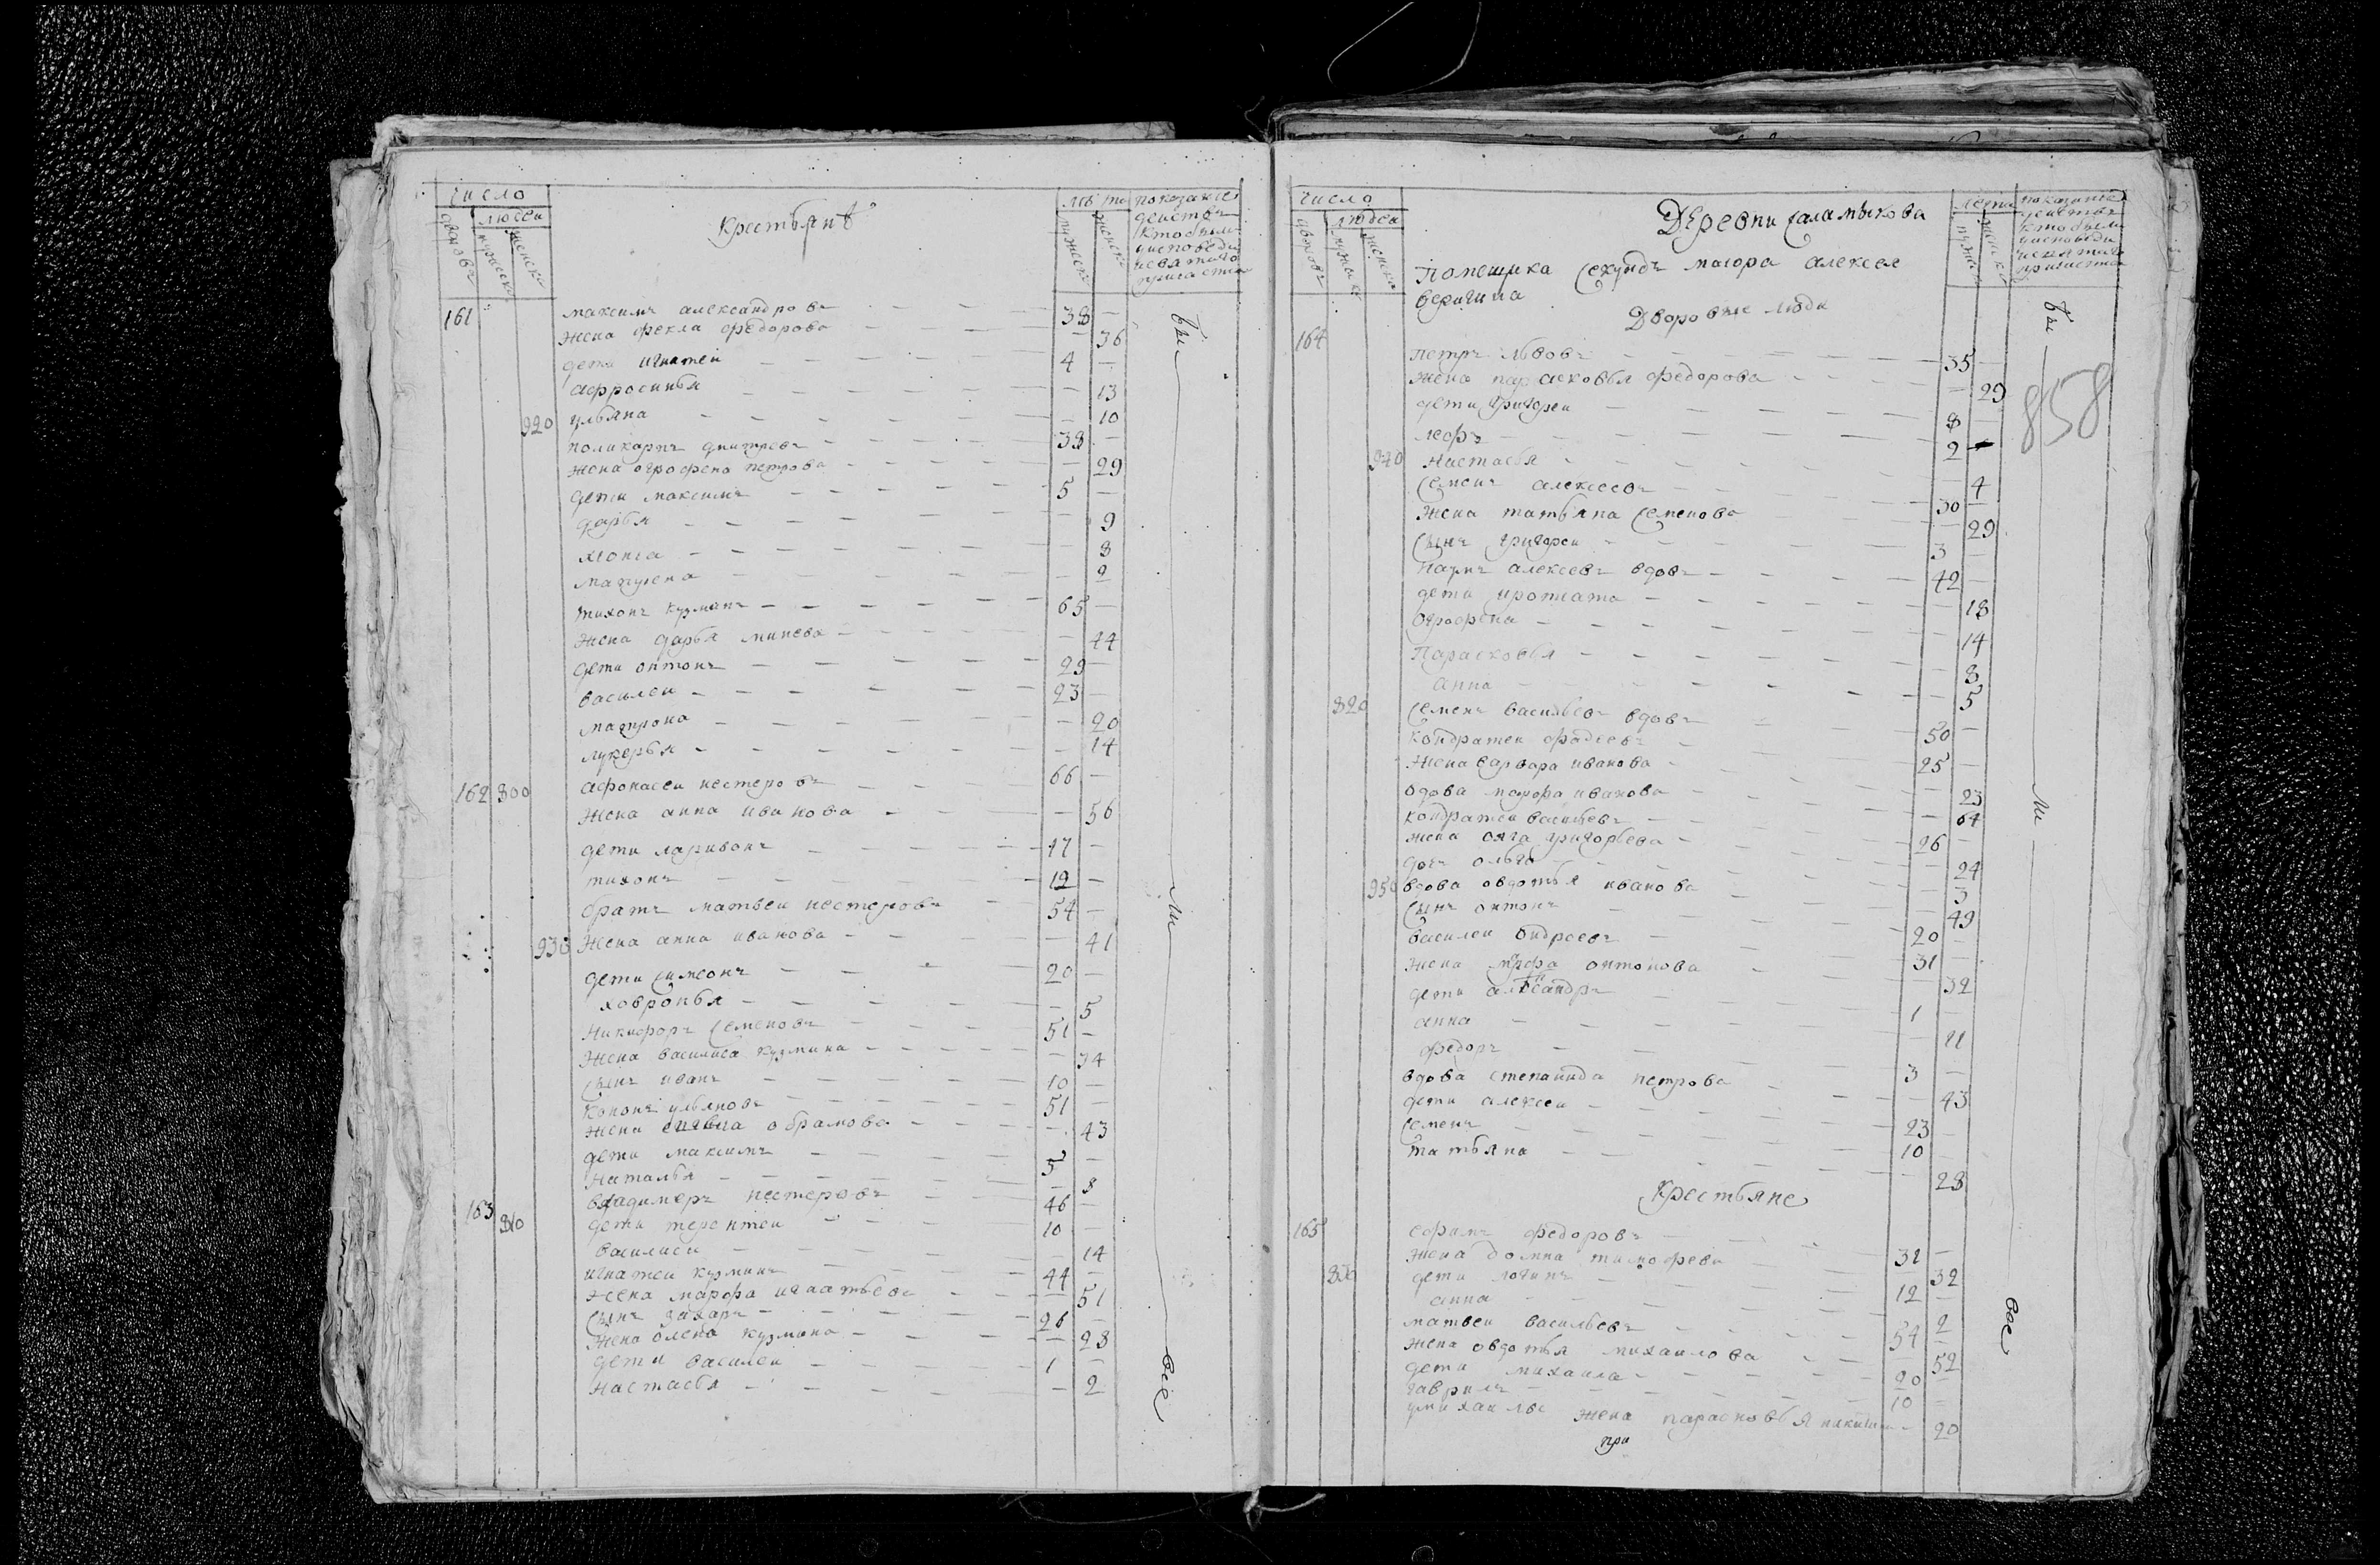 число
люdеи
дворовъ
мужеска
женска
крестьянѣ
лѣта
мужеска
женска
показание
действъ
кто были
у исповеди
и святаго
причастия
161 максимъ александровъ — 38 —
жена фекла федорова — — 36
дети игнатеи — 4 —
афросинья — — 13
920 ульяна — — 10
поликарпъ дмитревъ — 38 —
жена огрофена петрова — — 29
дети максимъ — 5 —
дарья — — 9
— 8
матрена — — 2
тихонъ кузминъ — 65 —
жена дарья минева — — 44
дети онтонъ — 29 —
василеи — 23 —
матрона — — 20
лукерья — — 14
162 800 афонасеи нестеровъ — 66 —
жена анна иванова — — 56
дети ларивонъ — 17 —
тихонъ — 12 —
братъ матвеи нестеровъ — 54 —
930 жена анна иванова — — 41
дети симеонъ — 20 —
ховронья — — 5
никифоръ семеновъ — 51 —
жена василиса кузмина — — 34
сынъ иванъ — 10 —
кононъ ульяновъ — 51 —
жена обрамова — — 43
дети максимъ — 5 —
наталья — — 8
163 владимеръ нестеровъ — 46 —
810 дети терентеи — 10 —
василиса — — 14
игнатеи кузминъ — 44 —
жена марфа игнатьева — — 51
сынъ захаръ — 26 —
жена олена кузмина — — 28
дети василеи — 1 —
настасья — — 2
бы
ли
все
число
люdеи
дворовъ
мужеска
женска
Деревни саламыкова
помещика секундъ маиора алексея
веригина
Дворовые люди
лета
мужеска
женска
показание
действъ
кто были
у исповеди
и святаго
причастия
164 петръ львовъ — 35 —
жена парасковья федорова — — 29
дети григореи — 8 —
— 2 —
940 настасья — — 4
семенъ алексеевъ — 30 —
жена татьяна семенова — — 29
сынъ григореи — 3 —
наумъ алексевъ вдовъ — 42 —
дети — 18
огрофена — — 14
парасковья — — 8
анна — — 5
820 семенъ васильевъ вдовъ — 50 —
кондратеи фадеевъ — 25 —
жена варвара иванова — — 23
вдова марфа иванова — — 64
кондратеи васильевъ — 26 —
жена григорьева — — 24
дочъ ольга — — 3
950 вдова овдотья иванова — — 49
сынъ онтонъ — 20 —
василеи ондреевъ — 31 —
жена марфа онтонова — — 32
дети александръ — 1 —
анна — — 11
федоръ — 3 —
вдова степанида петрова — — 43
дети алексеи — 23 —
семенъ — 10 —
татьяна — — 28
Крестьяне
165 ефимъ федоровъ — 31 —
жена домна тимофеева — — 32
830 дети логинъ — 12 —
анна — — 2
матвеи васильевъ — 54 —
жена овдотья михаилова — — 52
дети михаила — 20 —
гаврилъ — 10 —
у михаилы жена парасковья — 20
при
бы
858
ли
все